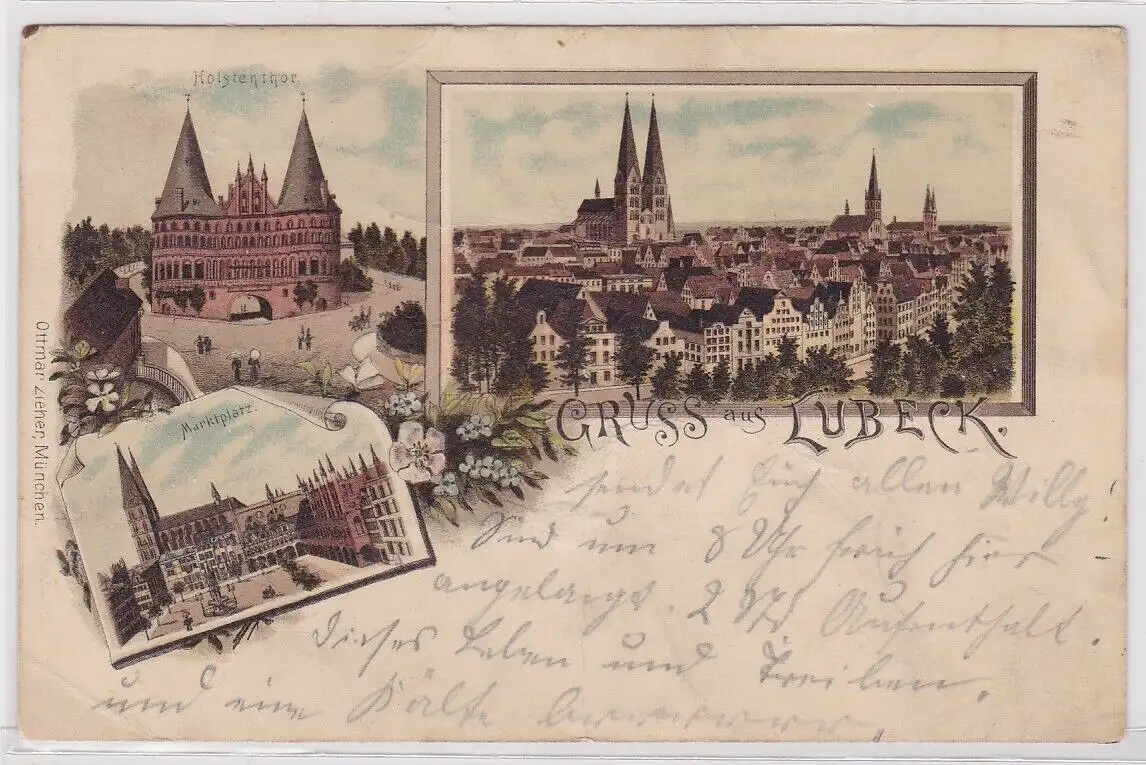 Holstenthor.
Marktplatz.
GRUSS aus LÜBECK.
Ottmar Zieher, München.
sendet Euch allen Willy.
Sind um 8 Uhr früh hier
angelangt. 2 Aufenthalt.
dieses Leben und Treiben,
und eine Kälte